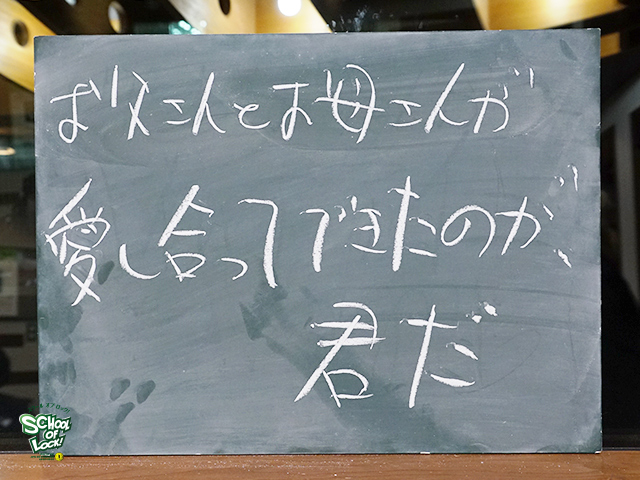 お父さんとお母さんが
愛し合ってできたのが
君だ
SCHOOL
OF
LOCK!